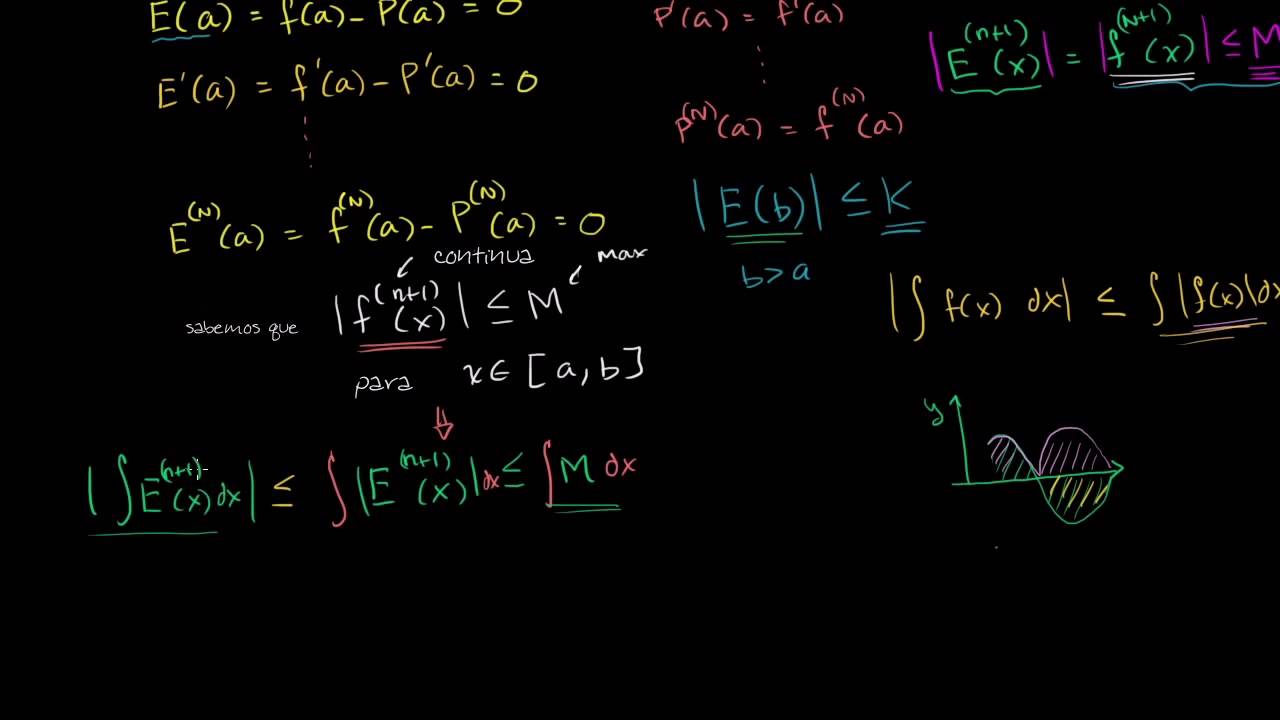 E(a) = f(a) - P(a) = 0
E'(a) = f'(a) - P'(a) = 0
E^(N)(a) = f^(N)(a) - P^(N)(a) = 0
continua
max
sabemos que |f^(n+1)(x)| ≤ M
para x ∈ [a, b]
|∫E^(n+1)(x) dx| ≤ ∫|E^(n+1)(x)| dx ≤ ∫M dx
P'(a) = f'(a)
P^(N)(a) = f^(N)(a)
|E(b)| ≤ K
b > a
|E^(n+1)(x)| = |f^(N+1)(x)| ≤ M
|∫ f(x) dx| ≤ ∫|f(x)| dx
y